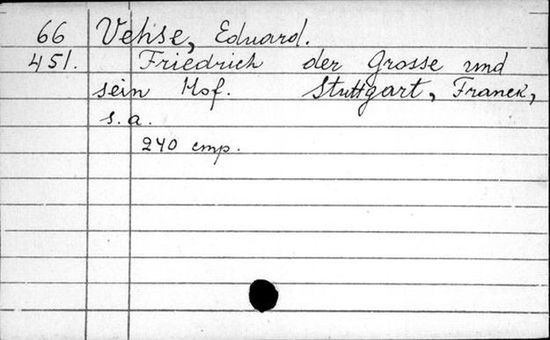 66 Vehse, Eduard.
451. Friedrich der Grosse und
sein Hof. Stuttgart, Franck,
s.a.
240 стр.